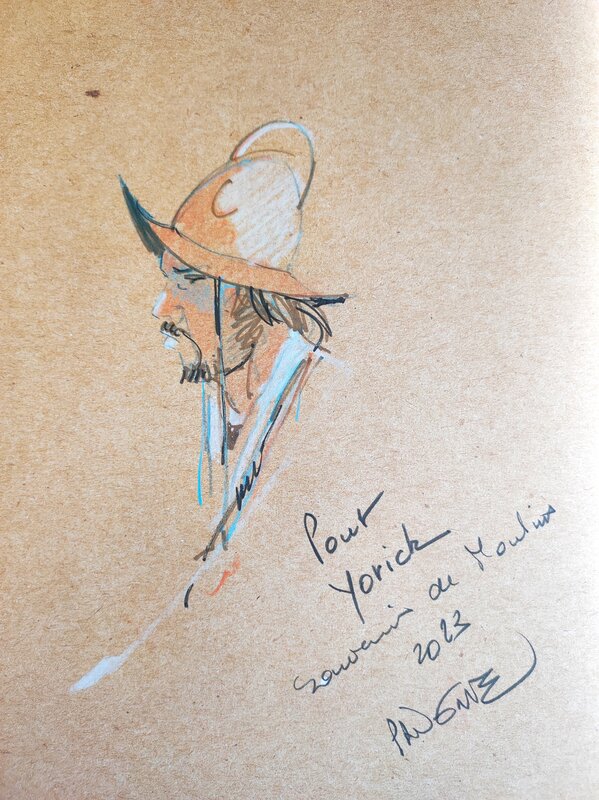 Pour
Yorick
souvenir de Moulins
2023